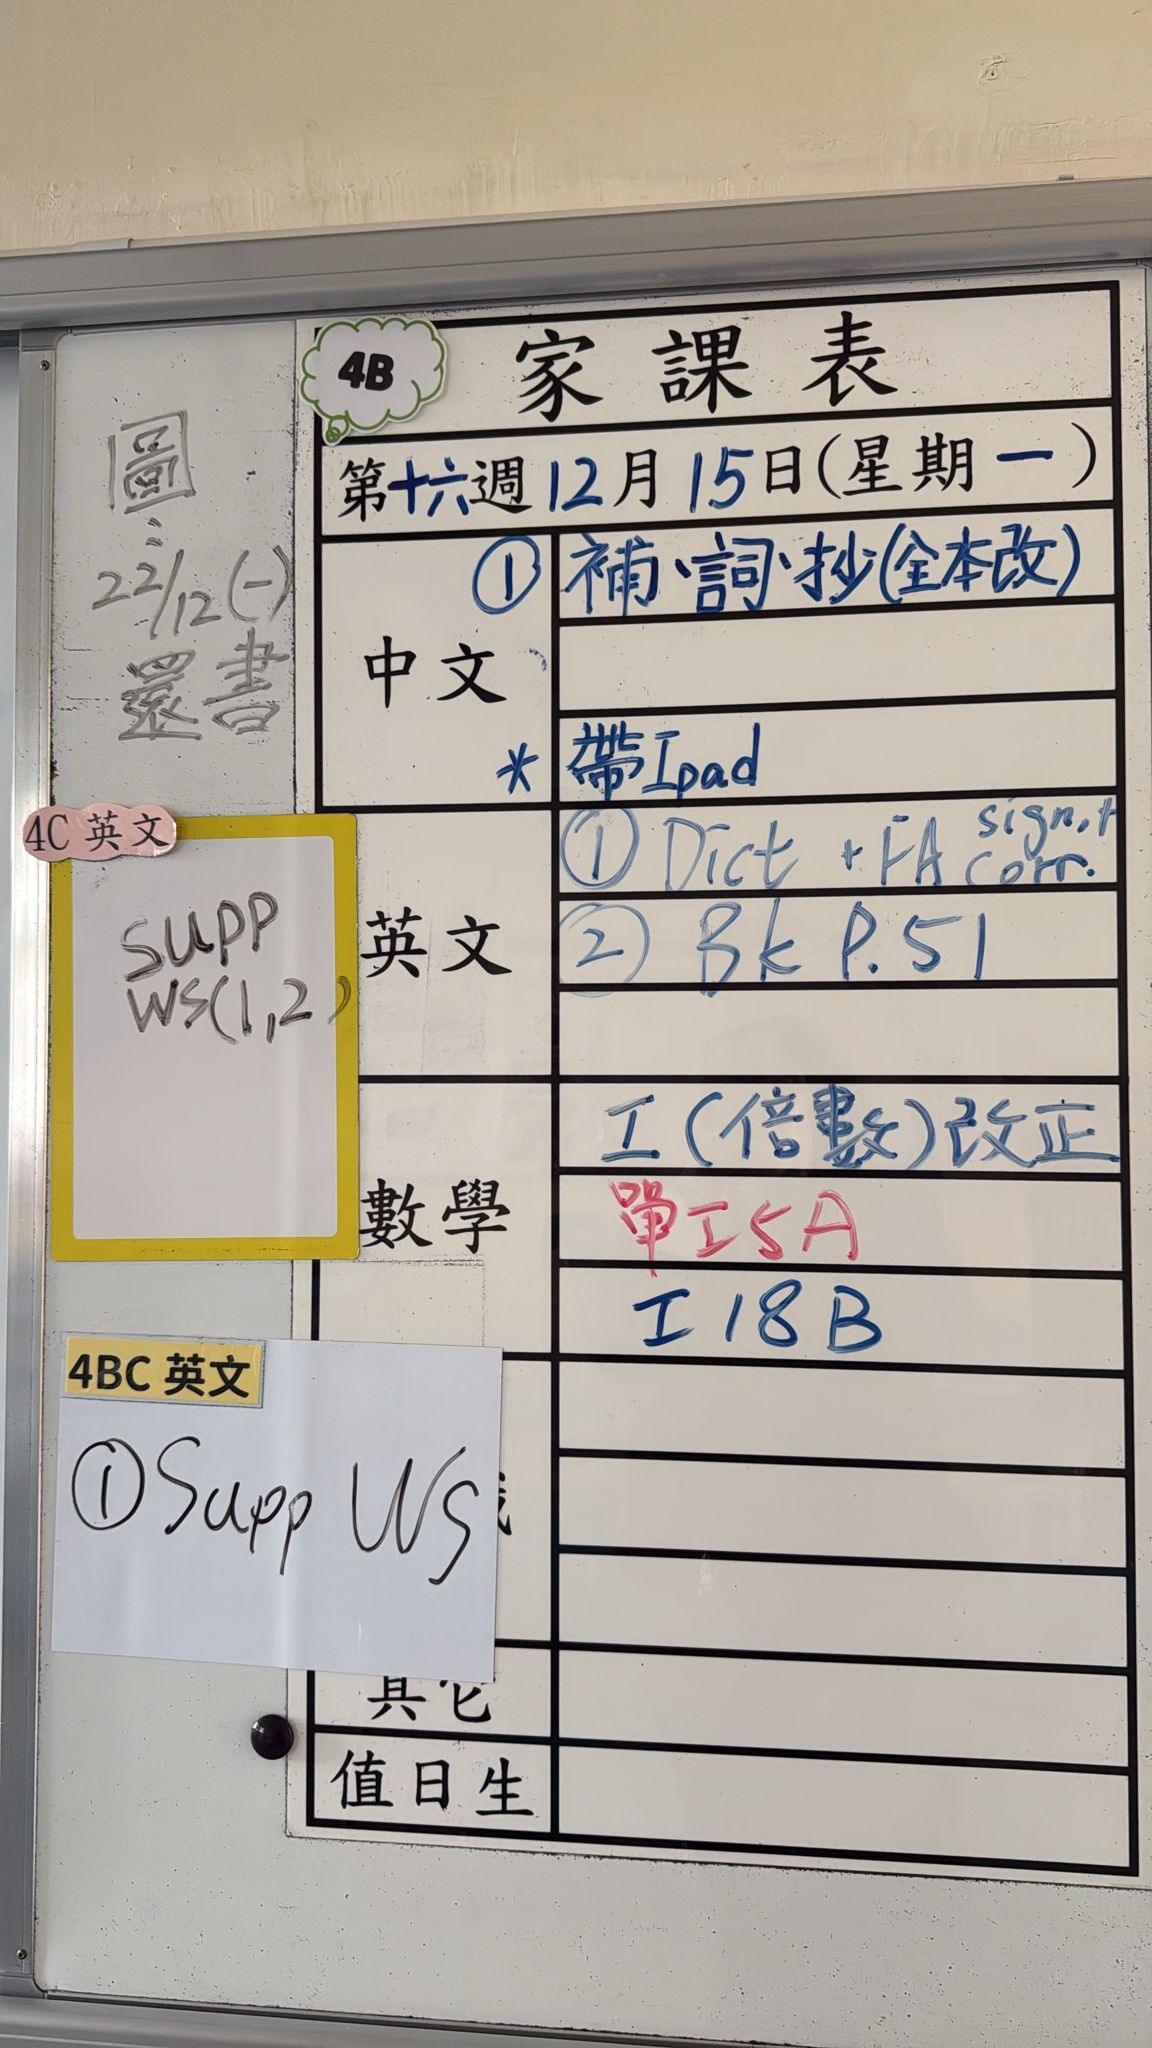 4B
家課表
第十六週12月15日(星期一)
圖:
22/12(一)
還書
中文
① 補、詞、抄(全本改)
* 帶Ipad
4C 英文
supp
ws(1,2)
英文
① Dict + FA sign.+
corr.
② Bk P.51
數學
工(倍數)改正
單工5A
工18B
4BC 英文
① Supp WS
其它
值日生